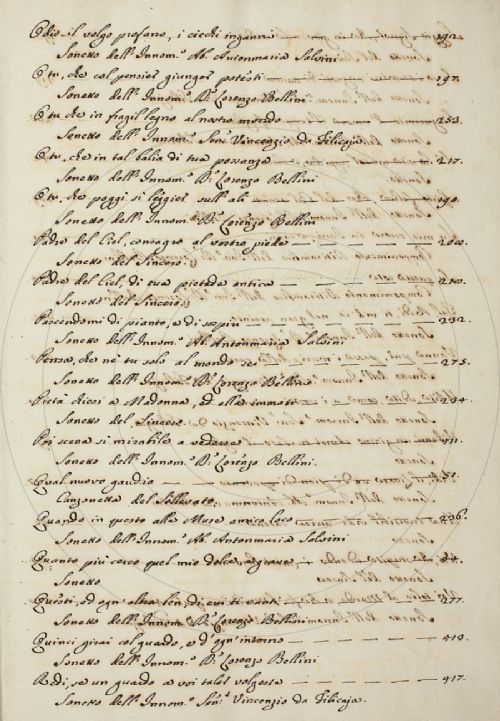 Odio il volgo profano, i ciechi inganni 192.
Sonetto dell'Innom.º Ab. Antonmaria Salvini
O tu, che col pensier giunger potesti 197.
Sonetto dell'Innom.º D.r Lorenzo Bellini
O tu che in fragil legno al nostro mondo 253.
Sonetto dell'Innom.º Sen.r Vincenzio da Filicaja.
O tu, che in tal balìa di tua possanza 217.
Sonetto dell'Innom.º D.r Lorenzo Bellini
O tu, che poggi sì leggier sull'ali 190.
Sonetto dell'Innom.º D.r Lorenzo Bellini
Padre del Ciel, consagro al vostro piede 200.
Sonetto del Sincero.
Padre del Ciel, di tua pietade antica
Sonetto del Sincero
Pascendomi di pianto, e di 232.
Sonetto dell'Innom.º Ab. Antonmaria Salvini
Pensa, che ne tu solo al mondo sei 275.
Sonetto dell'Innom.º D.r Lorenzo Bellini
Pietà dicei a Madonna, ed ella immoti 234
Sonetto del Sincero
Poi scena sì mirabile a vedersi 411.
Sonetto dell'Innom.º D.r Lorenzo Bellini.
Qual nuovo gaudio
Canzonetta del Sollevato
Quando in questo alle Muse amico loco 296.
Sonetto dell'Innom.º Ab. Antonmaria Salvini
Quanto più cerco quel mio dolce, e grave
Sonetto
Questi, ed ogn'altro ben, di cui ti vanti 277.
Sonetto dell'Innom.º D.r Lorenzo Bellini
Quinci girai col guardo, e d'ogn'intorno 413.
Sonetto dell'Innom.º D.r Lorenzo Bellini
Redi, se un guardo a voi talor volgeste 417.
Sonetto dell'Innom.º Sen.r Vincenzio da Filicaja.